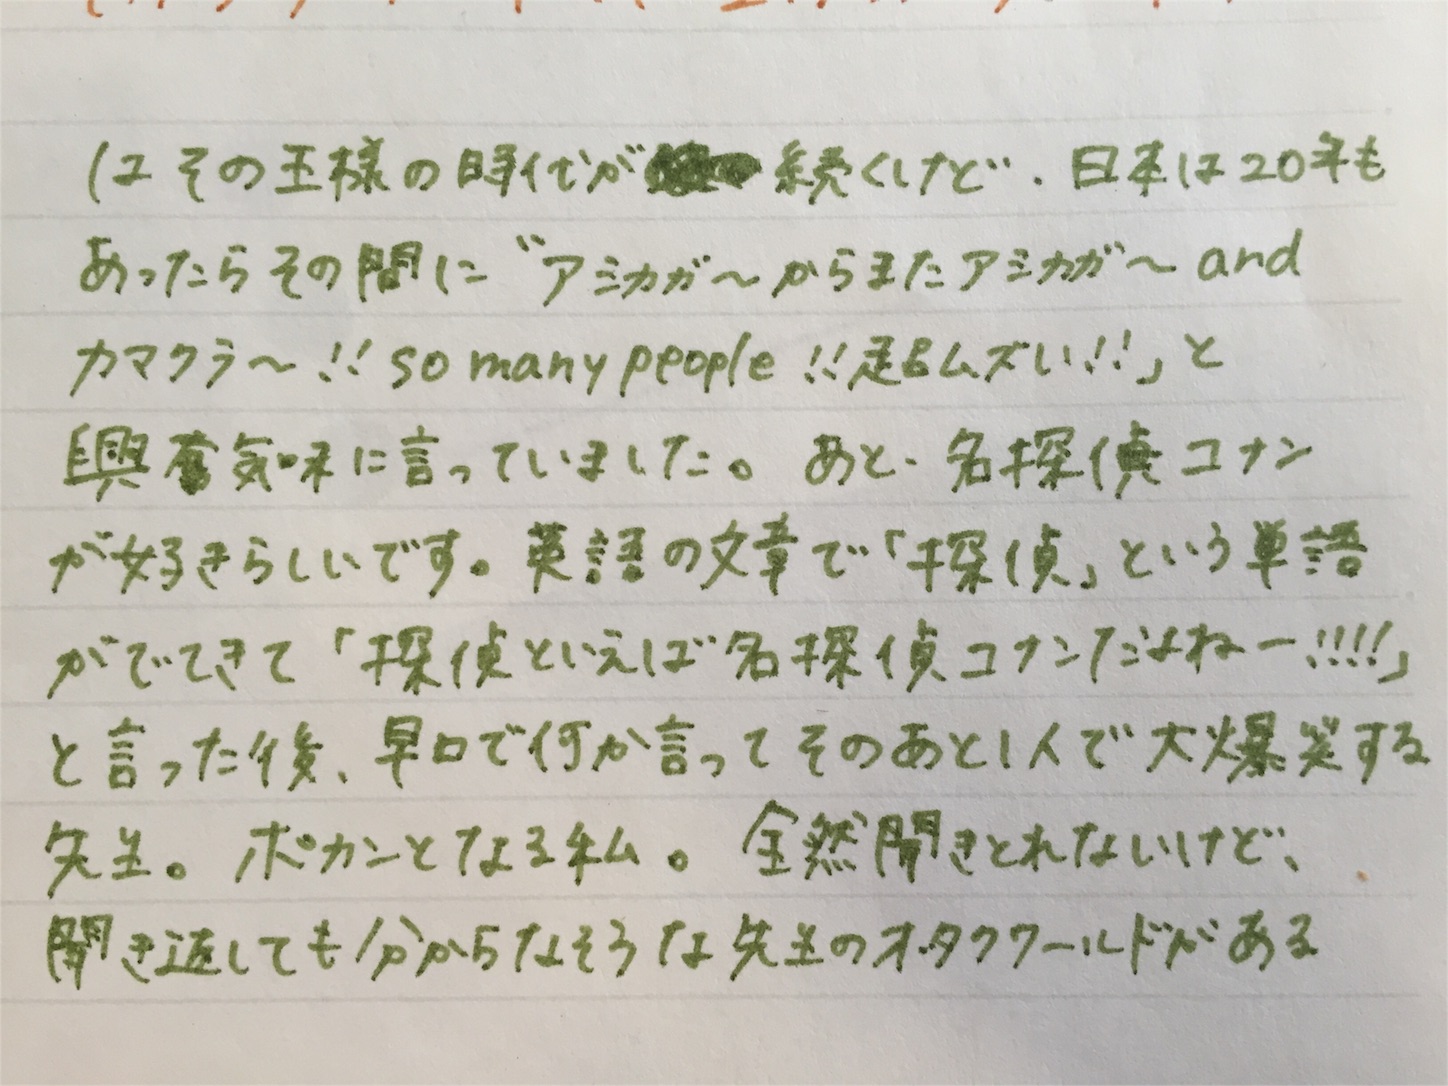 はその王様の時代が続くけど、日本は20年も
あったらその間に〝アシカガ〜からまたアシカガ〜and
カマクラ〜!! so many people!!超ムズい!!」と
興奮気味に言っていました。あと、名探偵コナン
が好きらしいです。英語の文章で「探偵」という単語
がでてきて「探偵といえば名探偵コナンだよねー!!!!」
と言った後、早口で何か言ってそのあと1人で大爆笑する
先生。ポカンとなる私。全然聞きとれないけど、
聞き返しても分からなそうな先生のオタクワールドがある